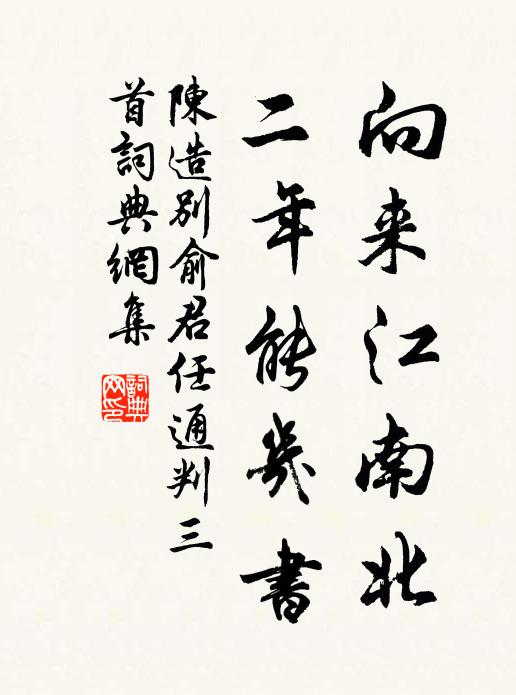 向来江南北
二年能幾書
陳造別俞君任通判三
首詞典網集
詞典
网印